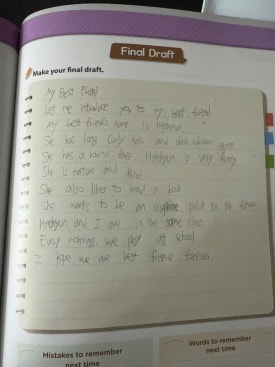 Final Draft
Make your final draft.
My Best Friend
Let me introduce you to my best friend
My best friend's name is
She has long curly hair and dark brown eyes.
She has a round face. Hyehyun is very funny
She is mature and kind.
She also likes to read a book
She wants to be an airplane pilot in the future.
Hyehyun and I are in the same class
Every morning, we play at school
I hope we are best friends forever.
Mistakes to remember
next time
Words to remember
next time